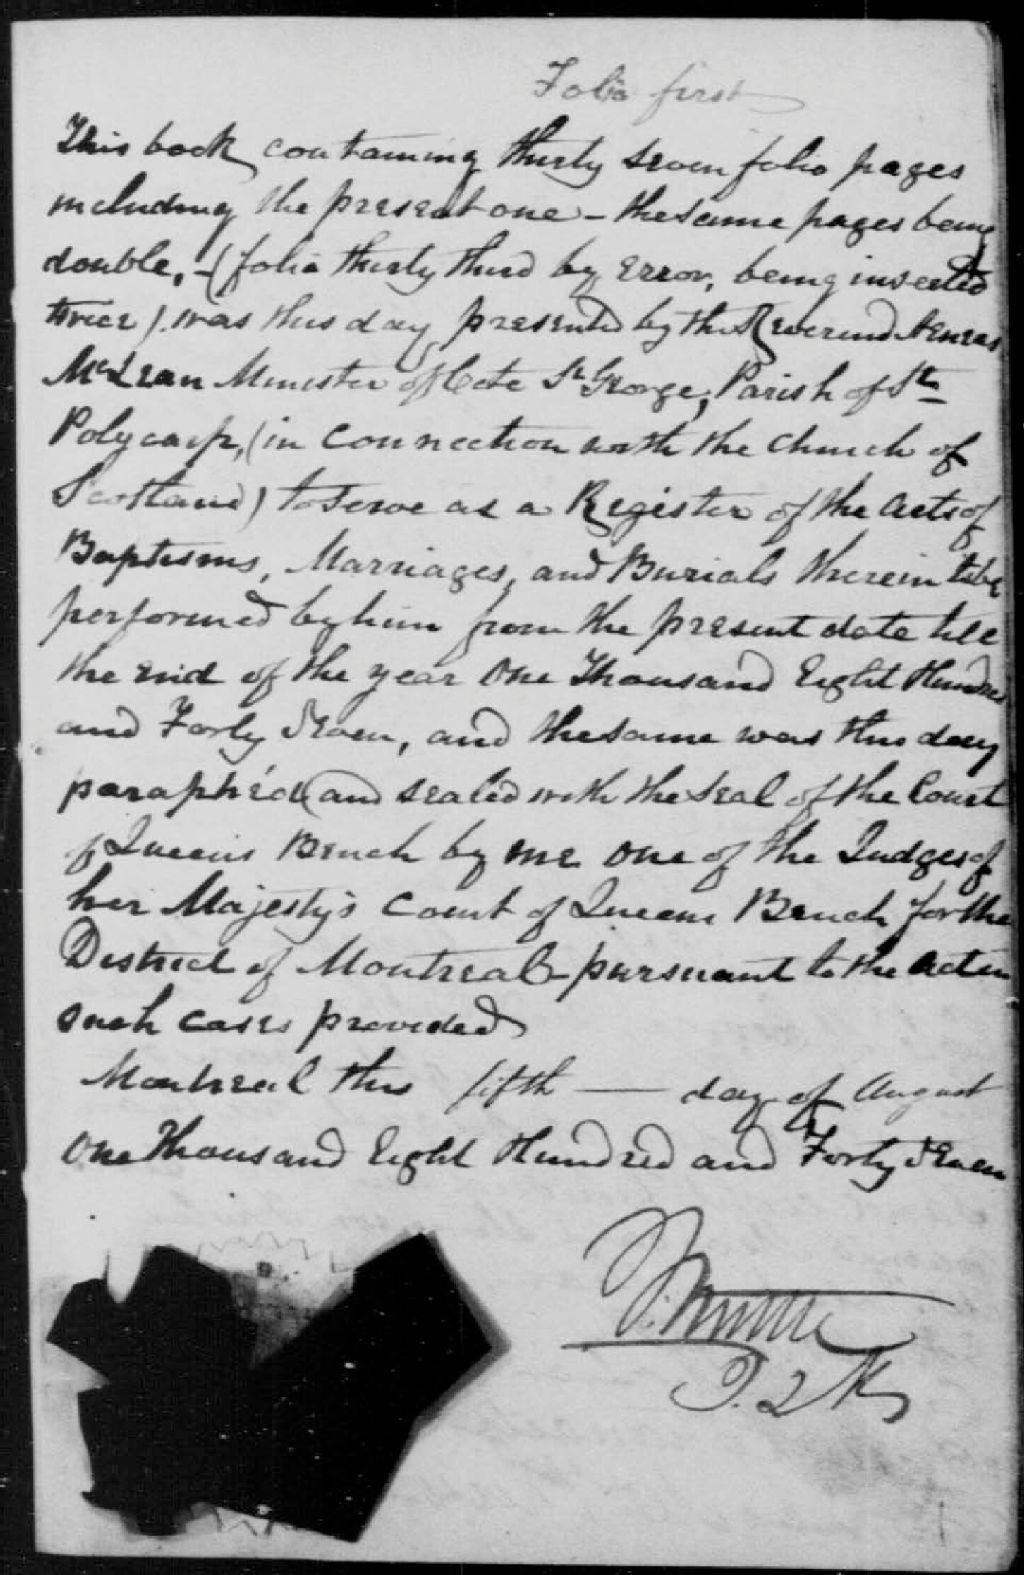 Folio first
This book containing thirty seven folio pages
including the present one - the same pages being
double, - (folio thirty third by error, being inserted
twice) was this day presented by the Reverend Aeneas
McLean Minister of Cote St George, Parish of St
Polycarp, (in connection with the Church of
Scotland) to serve as a Register of the Acts of
Baptisms, Marriages, and Burials therein to be
performed by him from the present date till
the end of the year One Thousand Eight Hundred
and Forty Seven, and the same was this day
paraphéd and sealed with the Seal of the Court
of Queens Bench by me one of the Judges of
her Majesty's Court of Queens Bench for the
District of Montreal - pursuant to the Act in
such cases provided
Montreal this fifth — day of August
One Thousand Eight Hundred and Forty Seven